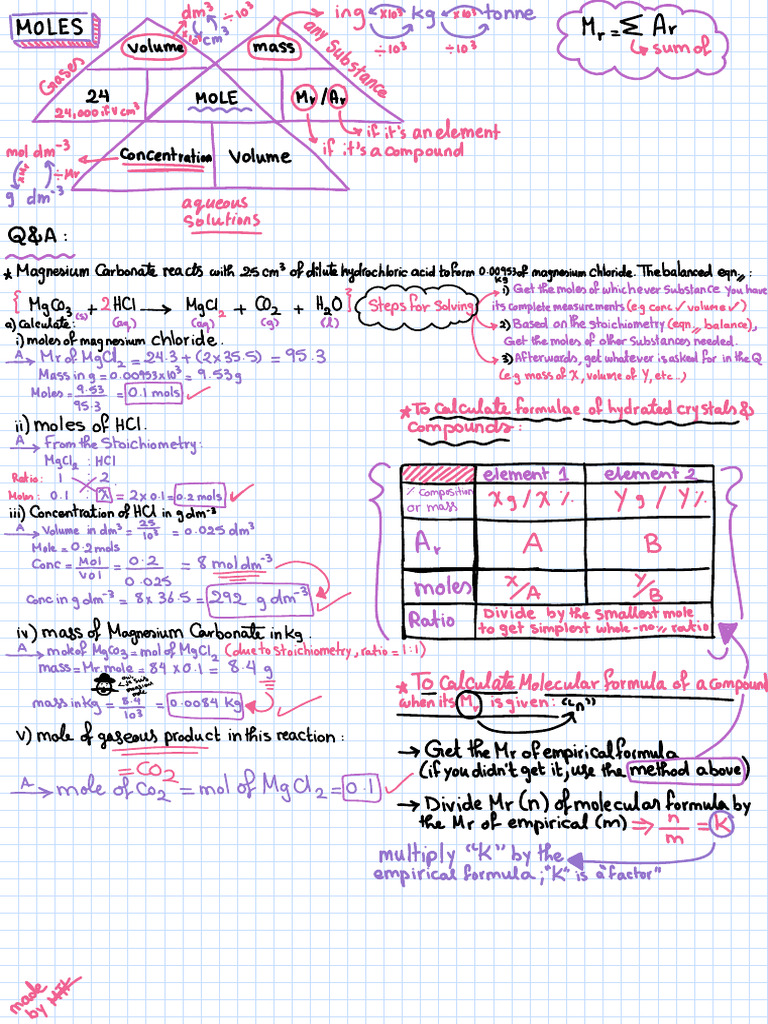 MOLES
dm³ ÷10³
×10³ cm³
in g ×10³ kg ×10³ tonne
÷10³ ÷10³
Mr = Σ Ar
↳ sum of
Gases
volume
mass
any Substance
24
24,000 if V cm³
MOLE
Mr / Ar
if it's an element
if it's a compound
mol dm⁻³
×Mr ÷Mr
g dm⁻³
Concentration
Volume
aqueous
Solutions
Q&A:
* Magnesium Carbonate reacts with 25 cm³ of dilute hydrochloric acid to form 0.00953 kg of magnesium chloride. The balanced eqn,, :
{ MgCo₃ (s) + 2HCl (aq) → MgCl₂ (aq) + CO₂ (g) + H₂O (l) }
a) Calculate:
i) moles of magnesium chloride.
A→ Mr of MgCl₂ = 24.3 + (2x35.5) = 95.3
Mass in g = 0.00953x10³ = 9.53g
Moles = 9.53/95.3 = 0.1 mols ✓
ii) moles of HCl.
A→ From the Stoichiometry:
MgCl₂ : HCl
Ratio: 1 2
Moles: 0.1 x = 2x0.1 = 0.2 mols ✓
iii) Concentration of HCl in g dm⁻³
A→ Volume in dm³ = 25/10³ = 0.025 dm³
Mole = 0.2 mols
Conc = Mol/Vol = 0.2/0.025 = 8 mol dm⁻³
Conc in g dm⁻³ = 8x36.5 = 292 g dm⁻³ ✓
iv) mass of Magnesium Carbonate in kg.
A→ mole of MgCo₃ = mol of MgCl₂ (due to stoichiometry, ratio = 1:1)
mass = Mr.mole = 84 x 0.1 = 8.4 g
mass in kg = 8.4/10³ = 0.0084 kg ✓
v) mole of gaseous product in this reaction:
= CO₂
A→ mole of Co₂ = mol of MgCl₂ = 0.1 ✓
Steps for Solving
1) Get the moles of whichever Substance you have
its complete measurements (e.g conc ✓ volume ✓)
2) Based on the stoichiometry (eqn,, balance),
Get the moles of other Substances needed.
3) Afterwards, get whatever is asked for in the Q
(e.g mass of X, volume of Y, etc..)
* To Calculate formulae of hydrated crystals &
Compounds:
element 1 element 2
% Composition or mass Xg / X% Yg / Y%
Ar A B
moles x/A y/B
Ratio Divide by the smallest mole
to get simplest whole-no,, ratio
* To Calculate Molecular formula of a compound
when its Mr is given: "n"
→ Get the Mr of empirical formula
(if you didn't get it, use the method above)
→ Divide Mr (n) of molecular formula by
the Mr of empirical (m) ⇒ n/m = K
multiply "K" by the
empirical formula; "K" is a "factor"
made
by